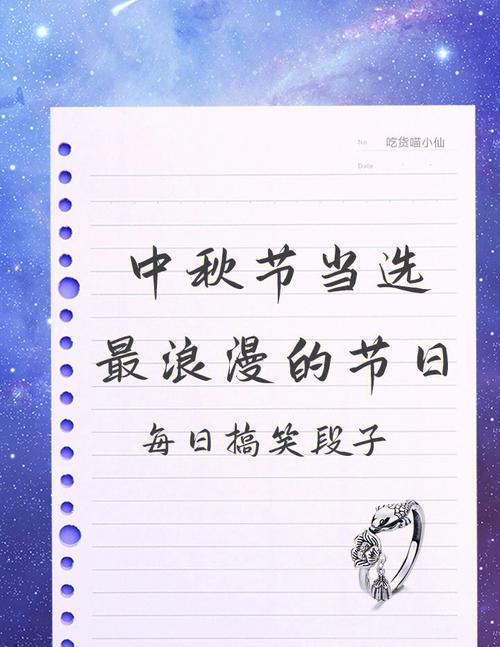 No 吃货喵小仙
Date
中秋节当选
最浪漫的节日
每日搞笑段子